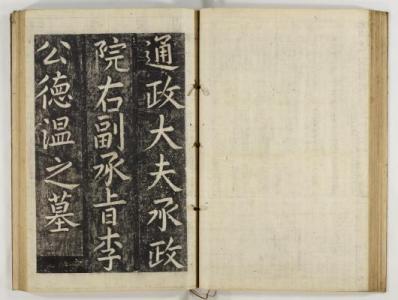 通政大夫承政
院右副承旨李
公德温之墓